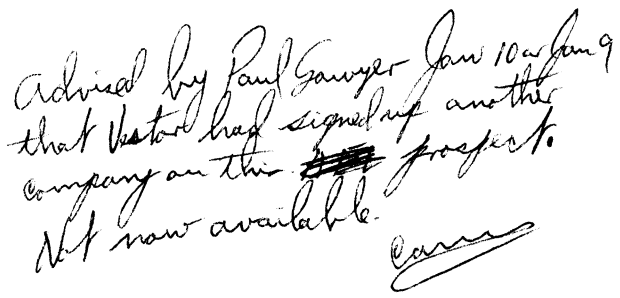 Advised by Paul Sawyer Jan 10 or Jan 9
that Vestor had signed up another
company on this prospect.
Not now available.